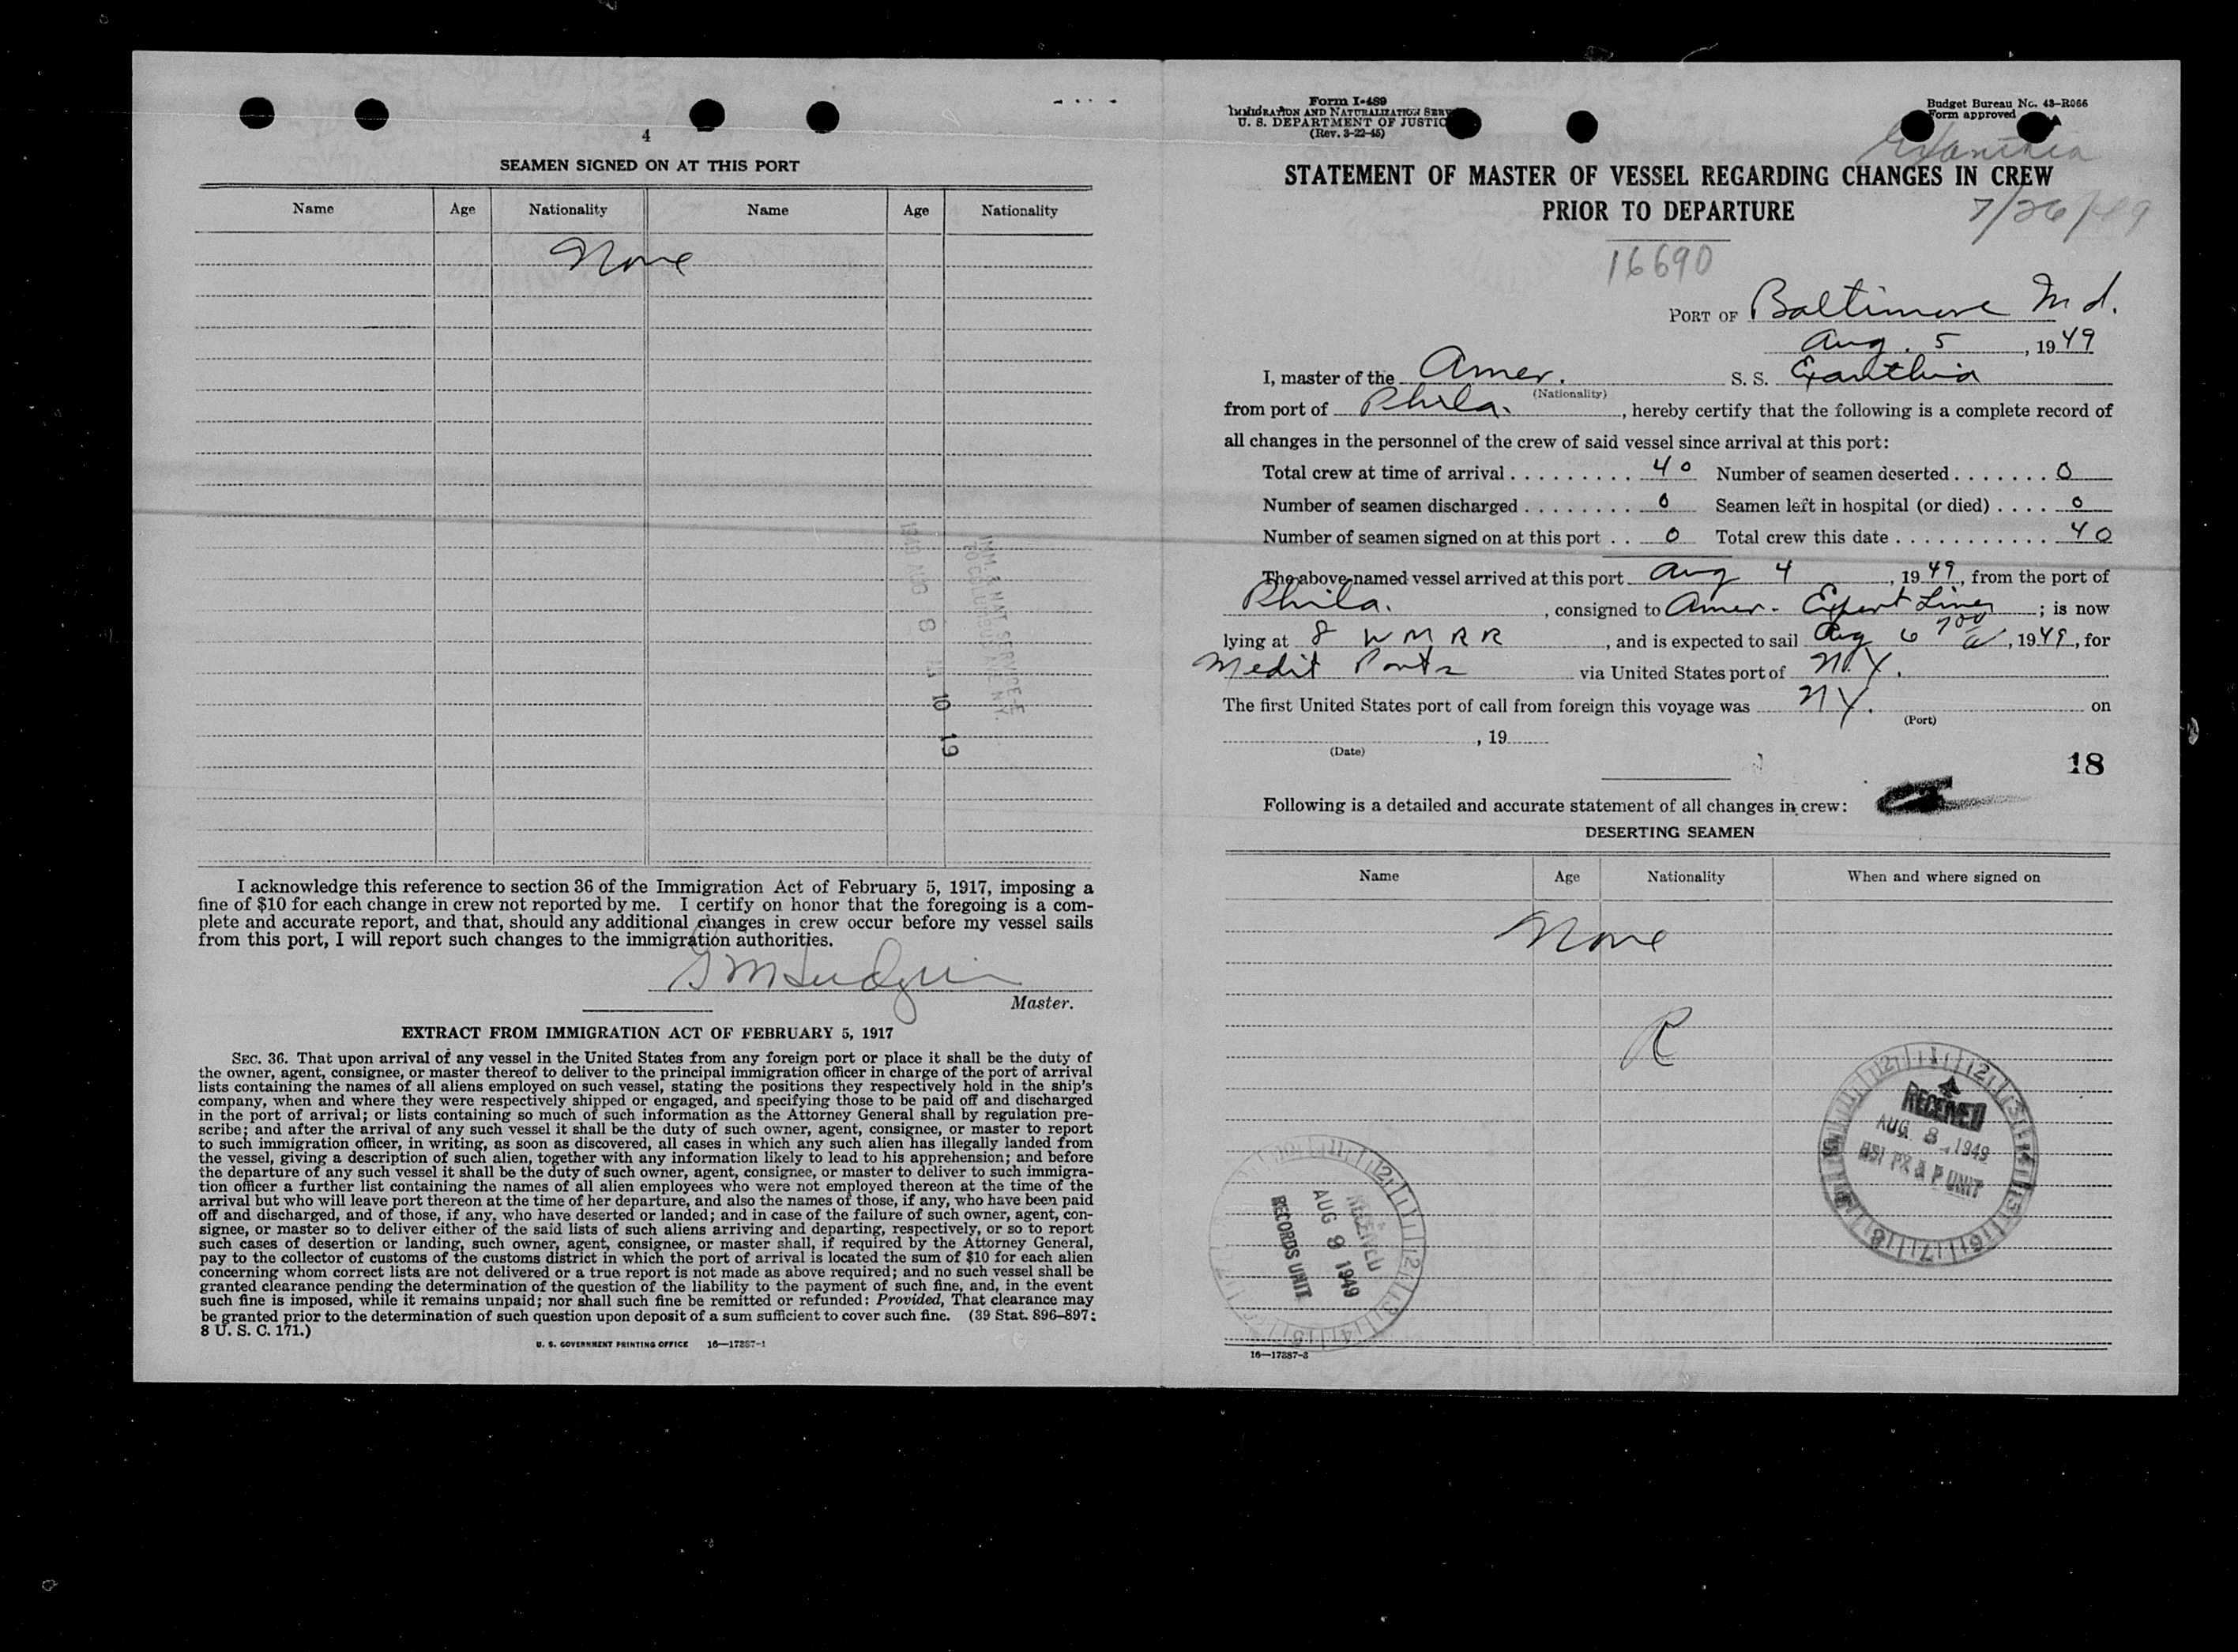 4
SEAMEN SIGNED ON AT THIS PORT
Name Age Nationality Name Age Nationality
None
1949 AUG 8 10 19
IMM & NAT SERVICE
70 COLUMBUS AVE N.Y.
I acknowledge this reference to section 36 of the Immigration Act of February 5, 1917, imposing a
fine of $10 for each change in crew not reported by me. I certify on honor that the foregoing is a com-
plete and accurate report, and that, should any additional changes in crew occur before my vessel sails
from this port, I will report such changes to the immigration authorities.
Master.
EXTRACT FROM IMMIGRATION ACT OF FEBRUARY 5, 1917
SEC. 36. That upon arrival of any vessel in the United States from any foreign port or place it shall be the duty of
the owner, agent, consignee, or master thereof to deliver to the principal immigration officer in charge of the port of arrival
lists containing the names of all aliens employed on such vessel, stating the positions they respectively hold in the ship's
company, when and where they were respectively shipped or engaged, and specifying those to be paid off and discharged
in the port of arrival; or lists containing so much of such information as the Attorney General shall by regulation pre-
scribe; and after the arrival of any such vessel it shall be the duty of such owner, agent, consignee, or master to report
to such immigration officer, in writing, as soon as discovered, all cases in which any such alien has illegally landed from
the vessel, giving a description of such alien, together with any information likely to lead to his apprehension; and before
the departure of any such vessel it shall be the duty of such owner, agent, consignee, or master to deliver to such immigra-
tion officer a further list containing the names of all alien employees who were not employed thereon at the time of the
arrival but who will leave port thereon at the time of her departure, and also the names of those, if any, who have been paid
off and discharged, and of those, if any, who have deserted or landed; and in case of the failure of such owner, agent, con-
signee, or master so to deliver either of the said lists of such aliens arriving and departing, respectively, or so to report
such cases of desertion or landing, such owner, agent, consignee, or master shall, if required by the Attorney General,
pay to the collector of customs of the customs district in which the port of arrival is located the sum of $10 for each alien
concerning whom correct lists are not delivered or a true report is not made as above required; and no such vessel shall be
granted clearance pending the determination of the question of the liability to the payment of such fine, and, in the event
such fine is imposed, while it remains unpaid; nor shall such fine be remitted or refunded: Provided, That clearance may
be granted prior to the determination of such question upon deposit of a sum sufficient to cover such fine. (39 Stat. 896–897;
8 U. S. C. 171.)
U. S. GOVERNMENT PRINTING OFFICE 16—17387-1
Form I-489
IMMIGRATION AND NATURALIZATION SERV
U. S. DEPARTMENT OF JUSTIC
(Rev. 3-22-45)
Budget Bureau No. 43–R066
Form approved
Exanthia
STATEMENT OF MASTER OF VESSEL REGARDING CHANGES IN CREW
PRIOR TO DEPARTURE
7/26/49
16690
PORT OF Baltimore Md.
Aug. 5, 1949
I, master of the Amer. S. S. Exanthia
(Nationality)
from port of Phila., hereby certify that the following is a complete record of
all changes in the personnel of the crew of said vessel since arrival at this port:
Total crew at time of arrival . . . . . . . . . 40 Number of seamen deserted . . . . . . . 0
Number of seamen discharged . . . . . . . . 0 Seamen left in hospital (or died) . . . . 0
Number of seamen signed on at this port . . 0 Total crew this date . . . . . . . . . . . 40
The above-named vessel arrived at this port Aug 4, 1949, from the port of
Phila., consigned to Amer. Export Lines; is now
lying at 8 W M R R, and is expected to sail Aug 6 700 a, 1949, for
Medit Ports via United States port of N.Y.
The first United States port of call from foreign this voyage was N Y. on
(Port)
, 19
(Date)
18
Following is a detailed and accurate statement of all changes in crew:
DESERTING SEAMEN
Name Age Nationality When and where signed on
None
R
RECEIVED
AUG 8 1949
PX & P UNIT
RECEIVED
AUG 9 1949
RECORDS UNIT
16—17387-3